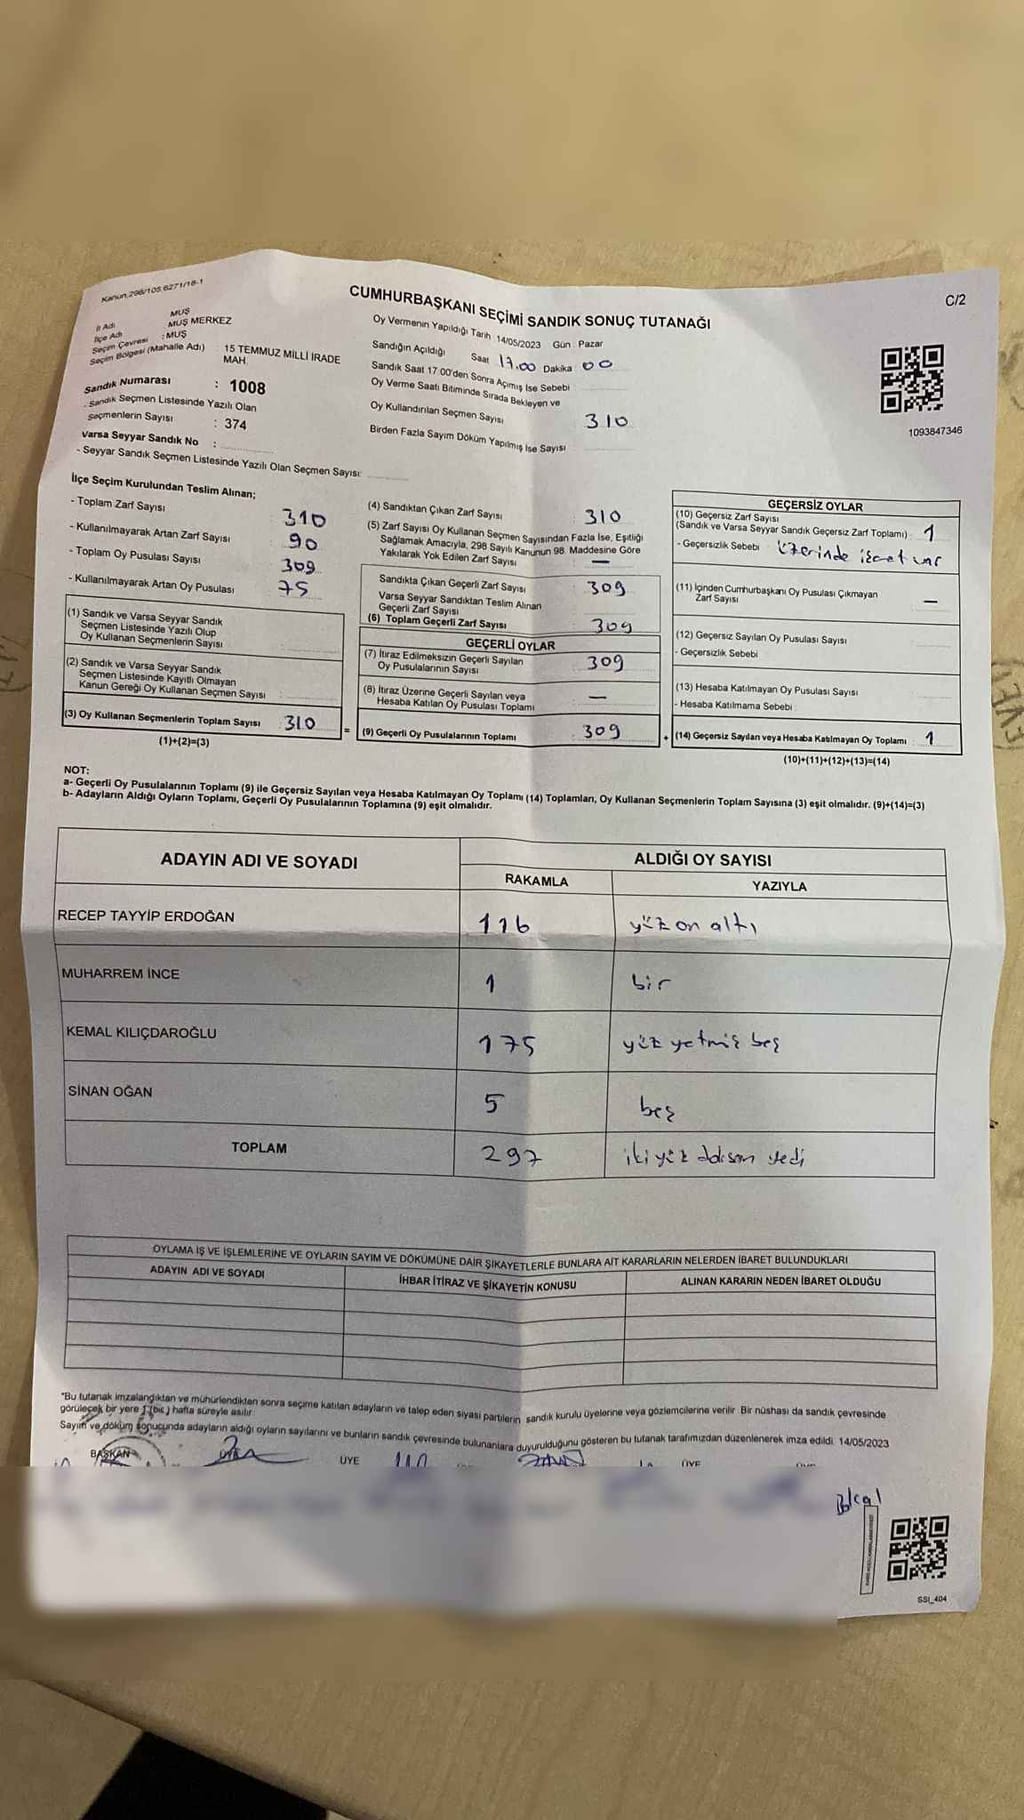 Kanun:298/105.6271/18-1
C/2
CUMHURBAŞKANI SEÇİMİ SANDIK SONUÇ TUTANAĞI
İl Adı MUŞ
İlçe Adı MUŞ MERKEZ
Seçim Çevresi : MUŞ
Seçim Bölgesi (Mahalle Adı) 15 TEMMUZ MİLLİ İRADE MAH.
Sandık Numarası : 1008
- Sandık Seçmen Listesinde Yazılı Olan
Seçmenlerin Sayısı : 374
Varsa Seyyar Sandık No :
- Seyyar Sandık Seçmen Listesinde Yazılı Olan Seçmen Sayısı:
Oy Vermenin Yapıldığı Tarih 14/05/2023 Gün : Pazar
Sandığın Açıldığı Saat 17.00 Dakika 00
Sandık Saat 17.00'den Sonra Açımış İse Sebebi
Oy Verme Saati Bitiminde Sırada Bekleyen ve
Oy Kullandırılan Seçmen Sayısı 310
Birden Fazla Sayım Döküm Yapılmış İse Sayısı
1093847346
İlçe Seçim Kurulundan Teslim Alınan;
- Toplam Zarf Sayısı 310
- Kullanılmayarak Artan Zarf Sayısı 90
- Toplam Oy Pusulası Sayısı 309
- Kullanılmayarak Artan Oy Pusulası 75
(1) Sandık ve Varsa Seyyar Sandık
Seçmen Listesinde Yazılı Olup
Oy Kullanan Seçmenlerin Sayısı :
(2) Sandık ve Varsa Seyyar Sandık
Seçmen Listesinde Kayıtlı Olmayan
Kanun Gereği Oy Kullanan Seçmen Sayısı :
(3) Oy Kullanan Seçmenlerin Toplam Sayısı : 310
(1)+(2)=(3)
=
(4) Sandıktan Çıkan Zarf Sayısı : 310
(5) Zarf Sayısı Oy Kullanan Seçmen Sayısından Fazla İse, Eşitliği
Sağlamak Amacıyla, 298 Sayılı Kanunun 98. Maddesine Göre
Yakılarak Yok Edilen Zarf Sayısı : —
Sandıkta Çıkan Geçerli Zarf Sayısı : 309
Varsa Seyyar Sandıktan Teslim Alınan
Geçerli Zarf Sayısı
(6) Toplam Geçerli Zarf Sayısı : 309
GEÇERLİ OYLAR
(7) İtiraz Edilmeksizin Geçerli Sayılan
Oy Pusulalarının Sayısı : 309
(8) İtiraz Üzerine Geçerli Sayılan veya
Hesaba Katılan Oy Pusulası Toplamı : —
(9) Geçerli Oy Pusulalarının Toplamı : 309
+
GEÇERSİZ OYLAR
(10) Geçersiz Zarf Sayısı
(Sandık ve Varsa Seyyar Sandık Geçersiz Zarf Toplamı) : 1
- Geçersizlik Sebebi : Üzerinde işaret var
(11) İçinden Cumhurbaşkanı Oy Pusulası Çıkmayan
Zarf Sayısı : —
(12) Geçersiz Sayılan Oy Pusulası Sayısı
- Geçersizlik Sebebi :
(13) Hesaba Katılmayan Oy Pusulası Sayısı
- Hesaba Katılmama Sebebi :
(14) Geçersiz Sayılan veya Hesaba Katılmayan Oy Toplamı : 1
(10)+(11)+(12)+(13)=(14)
NOT:
a- Geçerli Oy Pusulalarının Toplamı (9) ile Geçersiz Sayılan veya Hesaba Katılmayan Oy Toplamı (14) Toplamları, Oy Kullanan Seçmenlerin Toplam Sayısına (3) eşit olmalıdır. (9)+(14)=(3)
b- Adayların Aldığı Oyların Toplamı, Geçerli Oy Pusulalarının Toplamına (9) eşit olmalıdır.
ADAYIN ADI VE SOYADI ALDIĞI OY SAYISI
RAKAMLA YAZIYLA
RECEP TAYYİP ERDOĞAN 116 yüz on altı
MUHARREM İNCE 1 bir
KEMAL KILIÇDAROĞLU 175 yüz yetmiş beş
SİNAN OĞAN 5 beş
TOPLAM 297 iki yüz doksan yedi
OYLAMA İŞ VE İŞLEMLERİNE VE OYLARIN SAYIM VE DÖKÜMÜNE DAİR ŞİKAYETLERLE BUNLARA AİT KARARLARIN NELERDEN İBARET BULUNDUKLARI
ADAYIN ADI VE SOYADI İHBAR İTİRAZ VE ŞİKAYETİN KONUSU ALINAN KARARIN NEDEN İBARET OLDUĞU
*Bu tutanak imzalandıktan ve mühürlendikten sonra seçime katılan adayların ve talep eden siyasi partilerin sandık kurulu üyelerine veya gözlemcilerine verilir. Bir nüshası da sandık çevresinde
görülecek bir yere 1 (bir) hafta süreyle asılır.
Sayım ve döküm sonucunda adayların aldığı oyların sayılarını ve bunların sandık çevresinde bulunanlara duyurulduğunu gösteren bu tutanak tarafımızdan düzenlenerek imza edildi. 14/05/2023
BAŞKAN ÜYE ÜYE ÜYE
SSI_404